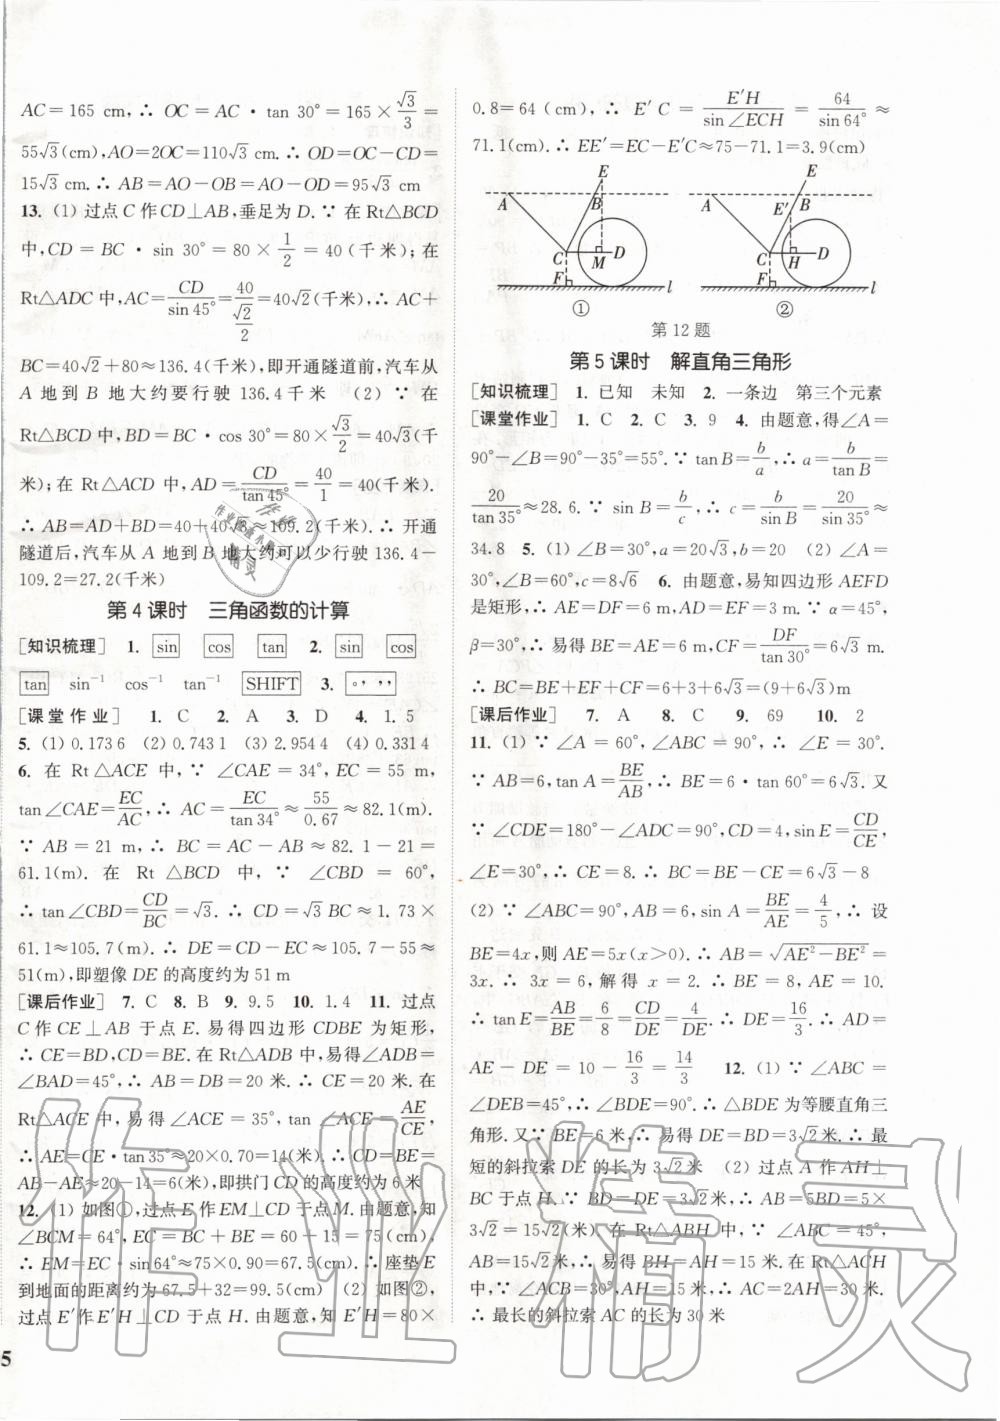 AC=165 cm,∴ OC=AC·tan 30°=165×√3/3=
55√3(cm),AO=2OC=110√3(cm).∴ OD=OC-CD=
15√3 cm.∴ AB=AO-OB=AO-OD=95√3 cm
13. (1) 过点C作CD⊥AB,垂足为D.∵ 在Rt△BCD
中,CD=BC·sin 30°=80×1/2=40(千米);在
Rt△ADC中,AC=CD/sin 45°=40/(√2/2)=40√2(千米),∴ AC+
BC=40√2+80≈136.4(千米),即开通隧道前,汽车从
A地到B地大约要行驶136.4千米 (2) ∵ 在
Rt△BCD中,BD=BC·cos 30°=80×√3/2=40√3(千
米);在Rt△ACD中,AD=CD/tan 45°=40/1=40(千米).
∴ AB=AD+BD=40+40√3≈109.2(千米).∴ 开通
隧道后,汽车从A地到B地大约可以少行驶136.4-
109.2=27.2(千米)
第4课时 三角函数的计算
[知识梳理] 1. sin cos tan 2. sin cos
tan sin⁻¹ cos⁻¹ tan⁻¹ SHIFT 3. °'″
[课堂作业] 1. C 2. A 3. D 4. 1.5
5. (1) 0.1736 (2) 0.7431 (3) 2.9544 (4) 0.3314
6. 在Rt△ACE中,∵ ∠CAE=34°,EC=55 m,
tan∠CAE=EC/AC,∴ AC=EC/tan 34°≈55/0.67≈82.1(m).
∵ AB=21 m,∴ BC=AC-AB≈82.1-21=
61.1(m). 在Rt△BCD中,∵ ∠CBD=60°,
∴ tan∠CBD=CD/BC=√3.∴ CD=√3BC≈1.73×
61.1≈105.7(m).∴ DE=CD-EC≈105.7-55≈
51(m),即塑像DE的高度约为51 m
[课后作业] 7. C 8. B 9. 9.5 10. 1.4 11. 过点
C作CE⊥AB于点E.易得四边形CDBE为矩形,
∴ CE=BD,CD=BE.在Rt△ADB中,易得∠ADB=
∠BAD=45°,∴ AB=DB=20米.∴ CE=20米.在
Rt△ACE中,易得∠ACE=35°,tan∠ACE=AE/CE,
∴ AE=CE·tan 35°≈20×0.70=14(米).∴ CD=BE=
AB-AE≈20-14=6(米),即拱门CD的高度约为6米
12. (1) 如图①,过点E作EM⊥CD于点M.由题意,知
∠BCM=64°,EC=BC+BE=60+15=75(cm),
∴ EM=EC·sin 64°≈75×0.90=67.5(cm).∴ 座垫E
到地面的距离约为67.5+32=99.5(cm) (2) 如图②,
过点E′作E′H⊥CD于点H.由题意,知E′H=80×
0.8=64(cm),∴ E′C=E′H/sin∠ECH=64/sin 64°≈
71.1(cm).∴ EE′=EC-E′C≈75-71.1=3.9(cm)
A B E C M D F l ①
A B E E′ C H D F l ②
第12题
第5课时 解直角三角形
[知识梳理] 1. 已知 未知 2. 一条边 第三个元素
[课堂作业] 1. C 2. C 3. 9 4. 由题意,得∠A=
90°-∠B=90°-35°=55°.∵ tan B=b/a,∴ a=b/tan B=
20/tan 35°≈28.6.∵ sin B=b/c,∴ c=b/sin B=20/sin 35°≈
34.8 5. (1) ∠B=30°,a=20√3,b=20 (2) ∠A=
30°,∠B=60°,c=8√6 6. 由题意,易知四边形AEFD
是矩形,∴ AE=DF=6 m,AD=EF=3 m.∵ α=45°,
β=30°,∴ 易得BE=AE=6 m,CF=DF/tan 30°=6√3 m.
∴ BC=BE+EF+CF=6+3+6√3=(9+6√3)m
[课后作业] 7. A 8. C 9. 69 10. 2
11. (1) ∵ ∠A=60°,∠ABC=90°,∴ ∠E=30°.
∵ AB=6,tan A=BE/AB,∴ BE=6·tan 60°=6√3.又
∵ ∠CDE=180°-∠ADC=90°,CD=4,sin E=CD/CE,
∠E=30°,∴ CE=8.∴ BC=BE-CE=6√3-8
(2) ∵ ∠ABC=90°,AB=6,sin A=BE/AE=4/5,∴ 设
BE=4x,则AE=5x(x>0).∴ AB=√(AE²-BE²)=
3x.∴ 3x=6,解得x=2.∴ BE=8,AE=10.
∴ tan E=AB/BE=6/8=CD/DE=4/DE.∴ DE=16/3.∴ AD=
AE-DE=10-16/3=14/3 12. (1) ∵ ∠ABC=
∠DEB=45°,∴ ∠BDE=90°.∴ △BDE为等腰直角三
角形.又∵ BE=6米,∴ 易得DE=BD=3√2米.∴ 最
短的斜拉索DE的长为3√2米 (2) 过点A作AH⊥
BC于点H.∵ BD=DE=3√2米,∴ AB=5BD=5×
3√2=15√2(米).在Rt△ABH中,∵ ∠ABC=45°,
AB=15√2米,∴ 易得BH=AH=15米.在Rt△ACH
中,∵ ∠ACB=30°,AH=15米,∴ AC=2AH=30米.
∴ 最长的斜拉索AC的长为30米
5
作业精灵